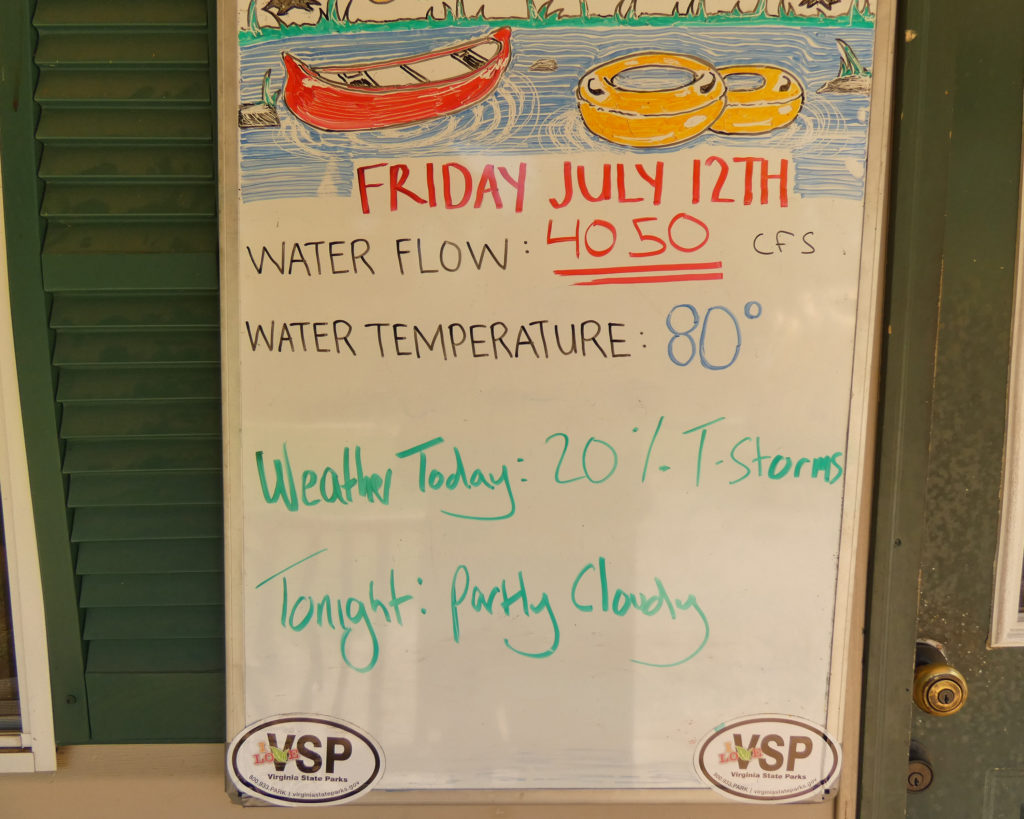 FRIDAY JULY 12TH
WATER FLOW: 4050 CFS
WATER TEMPERATURE: 80°
Weather Today: 20% T-Storms
Tonight: Partly Cloudy
I LOVE VSP
Virginia State Parks
800.933.PARK | virginiastateparks.gov
I LOVE VSP
Virginia State Parks
800.933.PARK | virginiastateparks.gov